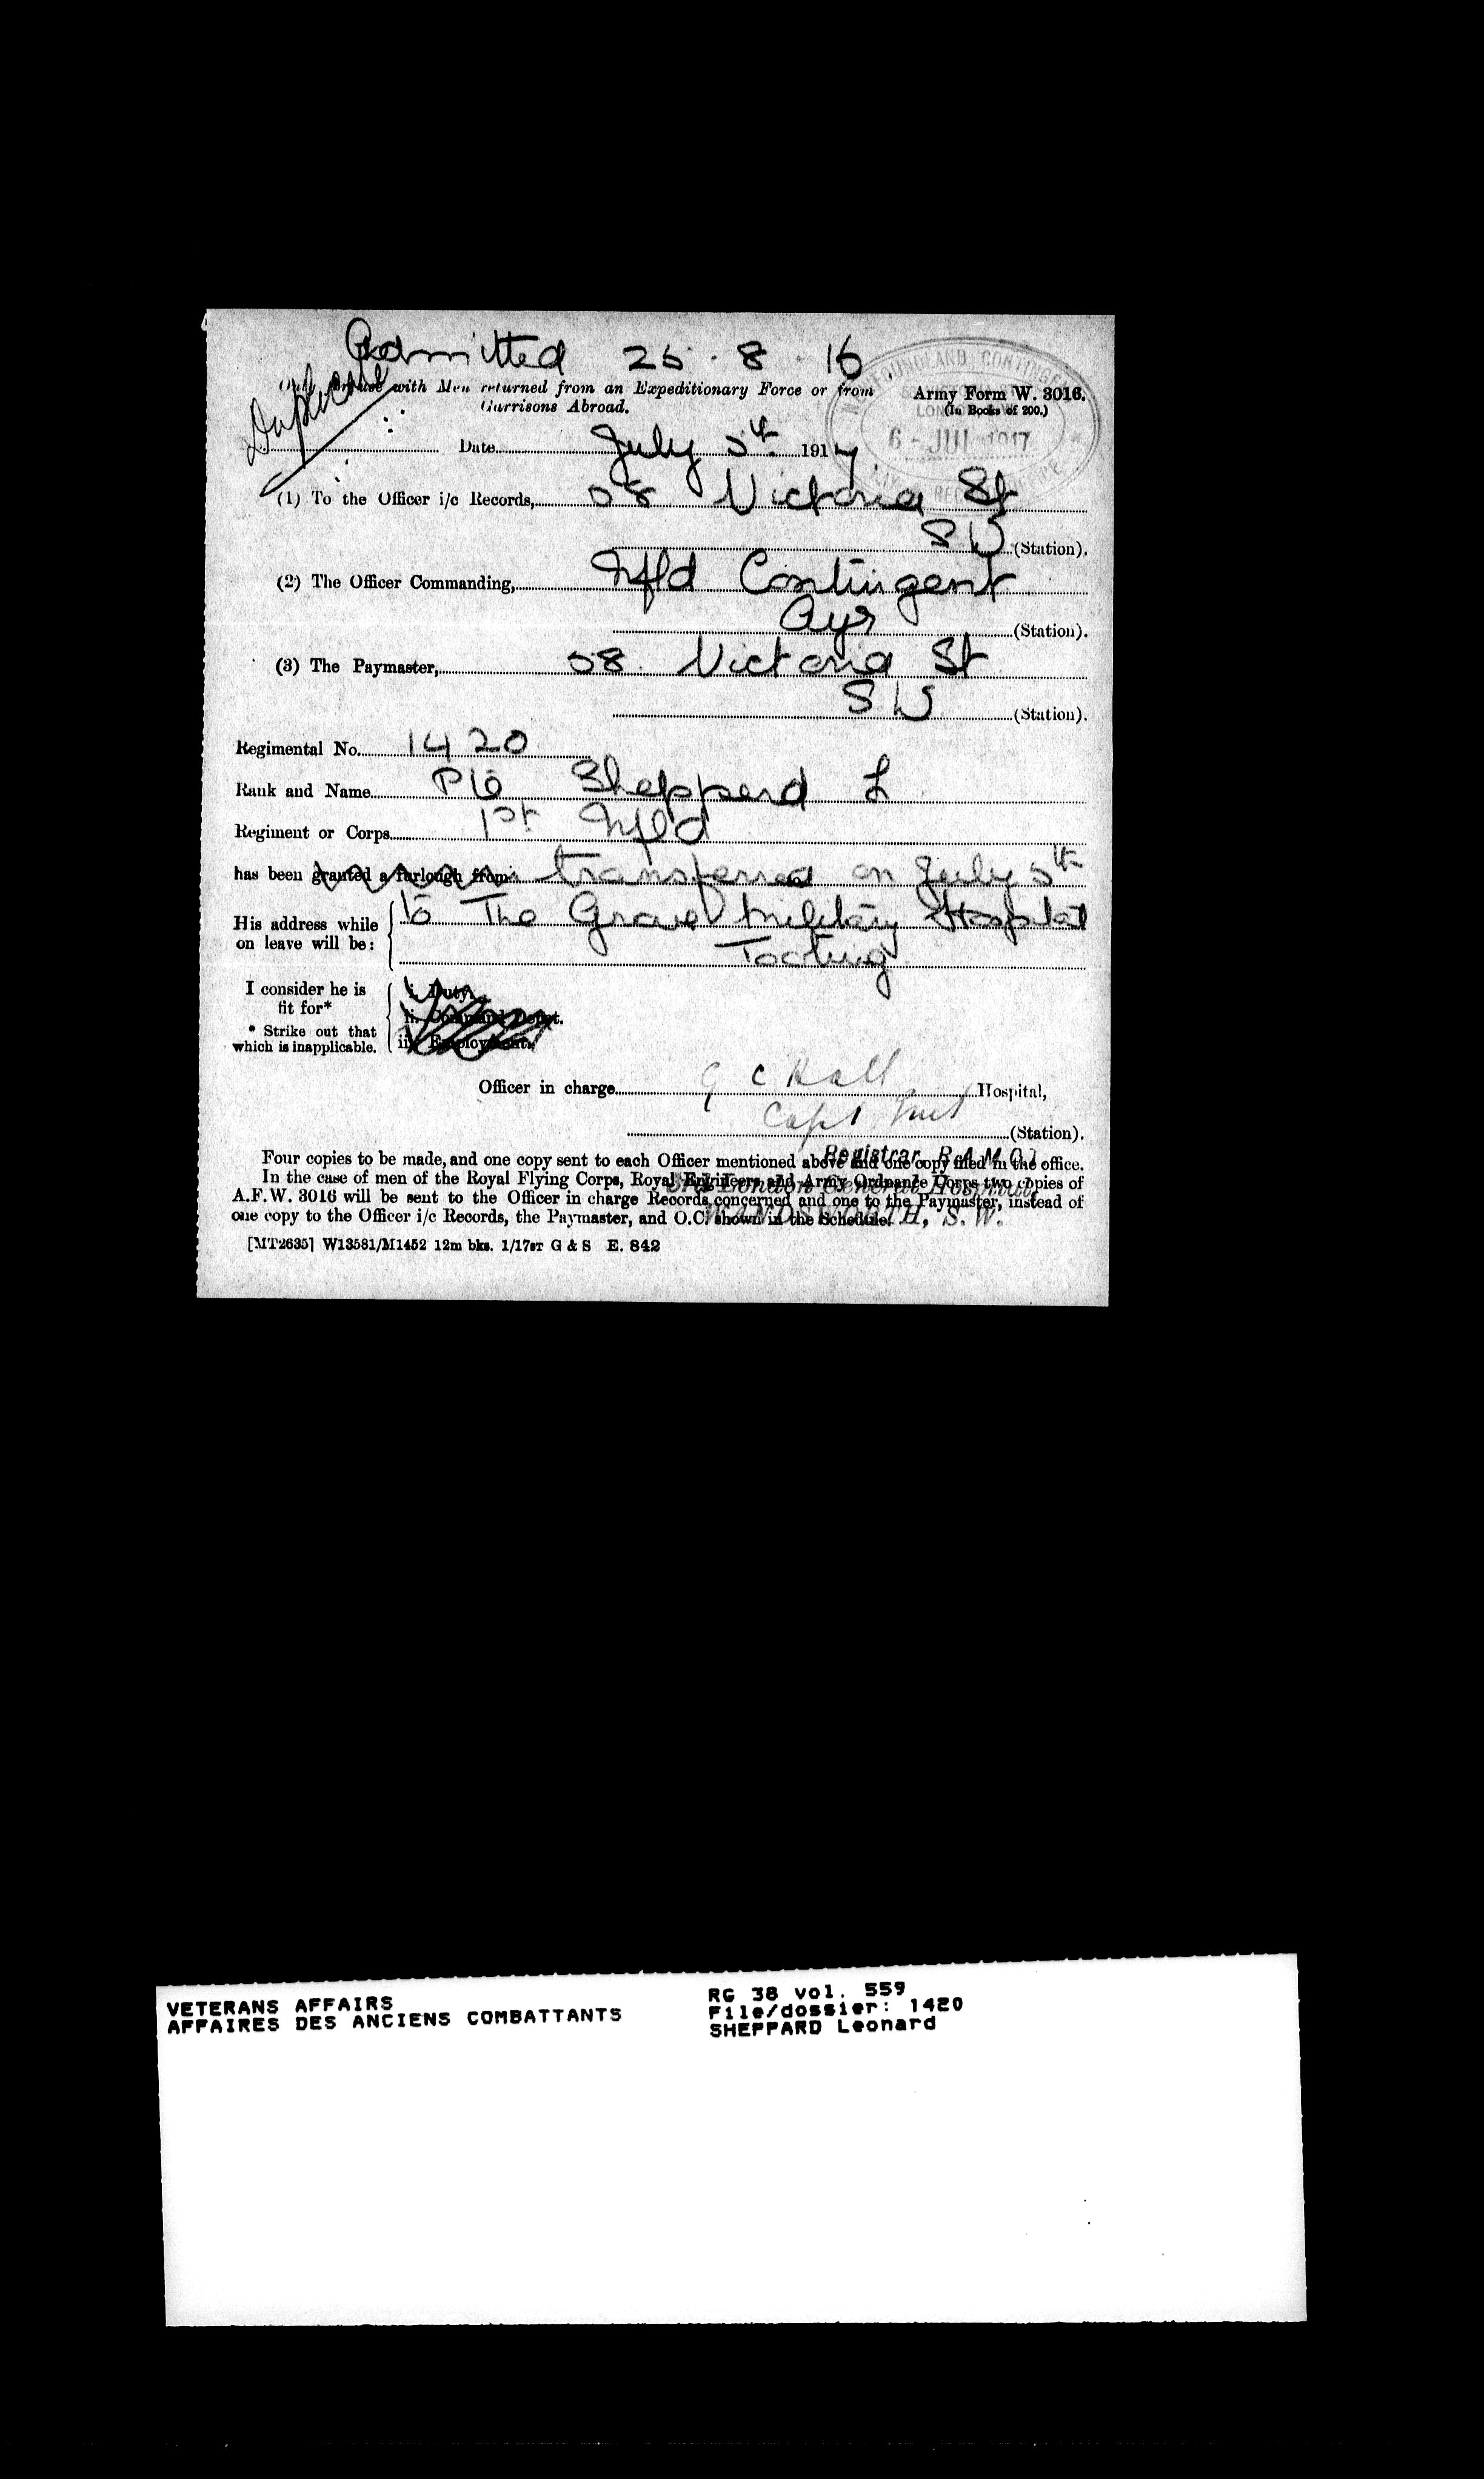 Admitted 25 . 8 . 16
Duplicate
Only for use with Men returned from an Expeditionary Force or from
Garrisons Abroad.
Army Form W. 3016.
(In Books of 200.)
NEWFOUNDLAND CONTINGENT
6 - JUL 1917
Date July 5th 1917
(1) To the Officer i/c Records, 58 Victoria St
S W (Station).
(2) The Officer Commanding, Nfld Contingent
Ayr (Station).
(3) The Paymaster, 58 Victoria St
S W (Station).
Regimental No. 1420
Rank and Name Pte Shepperd L
Regiment or Corps 1st Nfld
has been granted a furlough from transferred on July 5th
His address while
on leave will be: to The Grove Military Hospital
Tooting
I consider he is
fit for*
* Strike out that
which is inapplicable.
i. Duty.
ii. Command Depot.
iii. Employment.
Officer in charge G C Hall Hospital,
Capt (Station).
Registrar R.A.M.C.T.
3rd London General Hospital,
WANDSWORTH, S. W.
Four copies to be made, and one copy sent to each Officer mentioned above and one copy filed in the office.
In the case of men of the Royal Flying Corps, Royal Engineers and Army Ordnance Corps two copies of
A.F.W. 3016 will be sent to the Officer in charge Records concerned and one to the Paymaster, instead of
one copy to the Officer i/c Records, the Paymaster, and O.C. shown in the Schedule.
[MT2635] W13581/M1452 12m bks. 1/17sr G & S E. 842
VETERANS AFFAIRS
AFFAIRES DES ANCIENS COMBATTANTS
RG 38 vol. 559
File/dossier: 1420
SHEPPARD Leonard